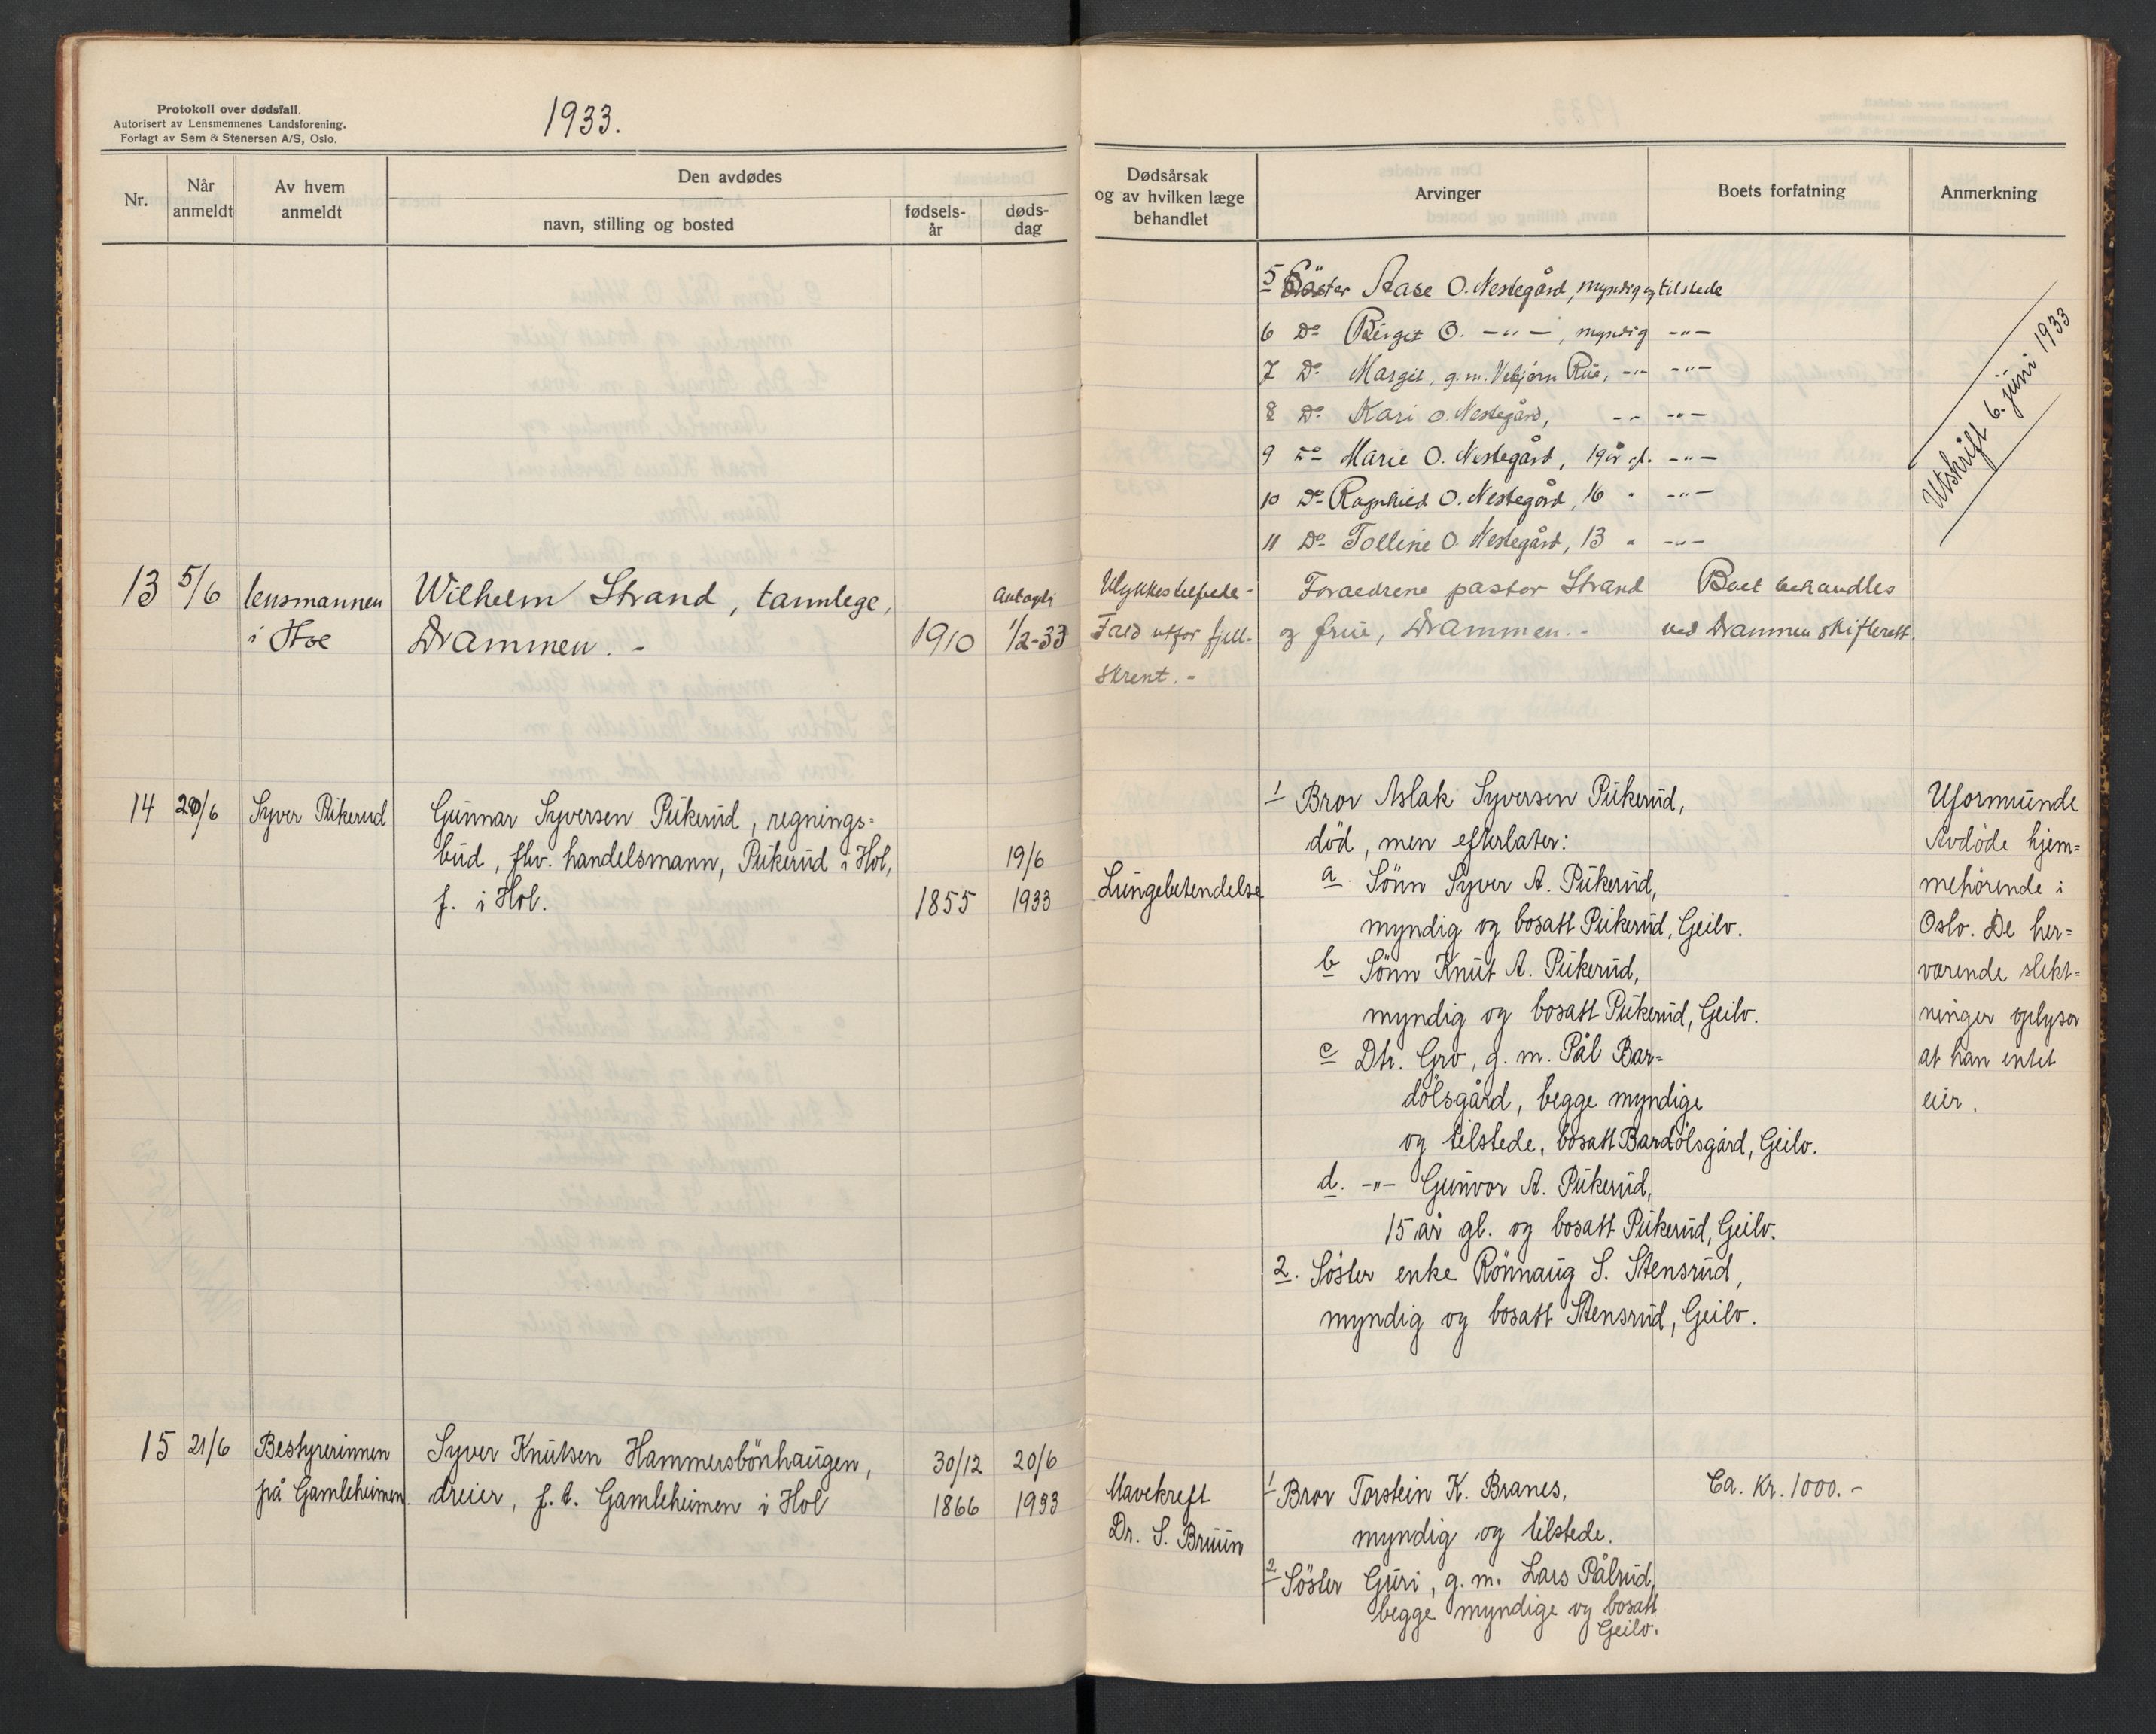 Protokoll over dødsfall.
Autorisert av Lensmennenes Landsforening.
Forlagt av Sem & Stenersen A/S, Oslo.
1933.
Nr.
Når anmeldt
Av hvem anmeldt
Den avdødes
navn, stilling og bosted
fødsels-år
døds-dag
Dødsårsak og av hvilken læge behandlet
Arvinger
Boets forfatning
Anmerkning
5 Söster Aase O. Nestegård, myndig og tilstede
6 Do Birgit O. -"-, myndig -"-
7 Do Margit, g.m. Vebjørn Rue, -"- -"-
8 Do Kari O. Nestegård, -"- -"-
9 Do Marie O. Nestegård, 19 år gl. -"-
10 Do Ragnhild O. Nestegård, 16 " -"-
11 Do Tolline O. Nestegård, 13 " -"-
Utskrift 6. juni 1933
13 5/6 lensmannen
i Hol
Wilhelm Strand, tannlege,
Drammen. -
1910
antagel.
1/2-33
Ulykkestilfelle -
Fald utfor fjell-
skrent. -
Foreldrene pastor Strand
og frue, Drammen. -
Boet behandles
ved Drammen skifterett.
14 20/6 Syver Pükerud
Gunnar Syversen Pükerud, regnings=
bud, fhv. handelsmann, Pükerud i Hol,
f. i Hol.
1855
19/6
1933
Lungebetendelse
1 Bror Aslak Syversen Pükerud,
död, men efterlater:
a. Sönn Syver A. Pükerud,
myndig og bosatt Pükerud, Geilo.
b Sönn Knut A. Pükerud,
myndig og bosatt Pükerud, Geilo.
c Dtr. Gro, g. m. Pål Bar=
dölsgård, begge myndige
og tilstede, bosatt Bardölsgård, Geilo.
d. -"- Gunvor A. Pükerud,
15 år gl. og bosatt Pükerud, Geilo.
2. Söster enke Rönnaug S. Stensrud,
myndig og bosatt Stensrud, Geilo.
Uformunde
Avdöde hjem=
mehörende i
Oslo. De her=
værende slekt=
ninger oplyser
at han intet
eier.
15 21/6 Bestyrerinnen
på Gamleheimen.
Syver Knutsen Hammersbönhaugen,
dreier, f. t. Gamleheimen i Hol
30/12
1866
20/6
1933
Mavekreft
Dr. S. Bruun
1 Bror Torstein K. Branes,
myndig og tilstede.
2 Söster Guri, g. m. Lars Pålrud,
begge myndige og bosatt
Geilo.
Ca. Kr. 1000. -